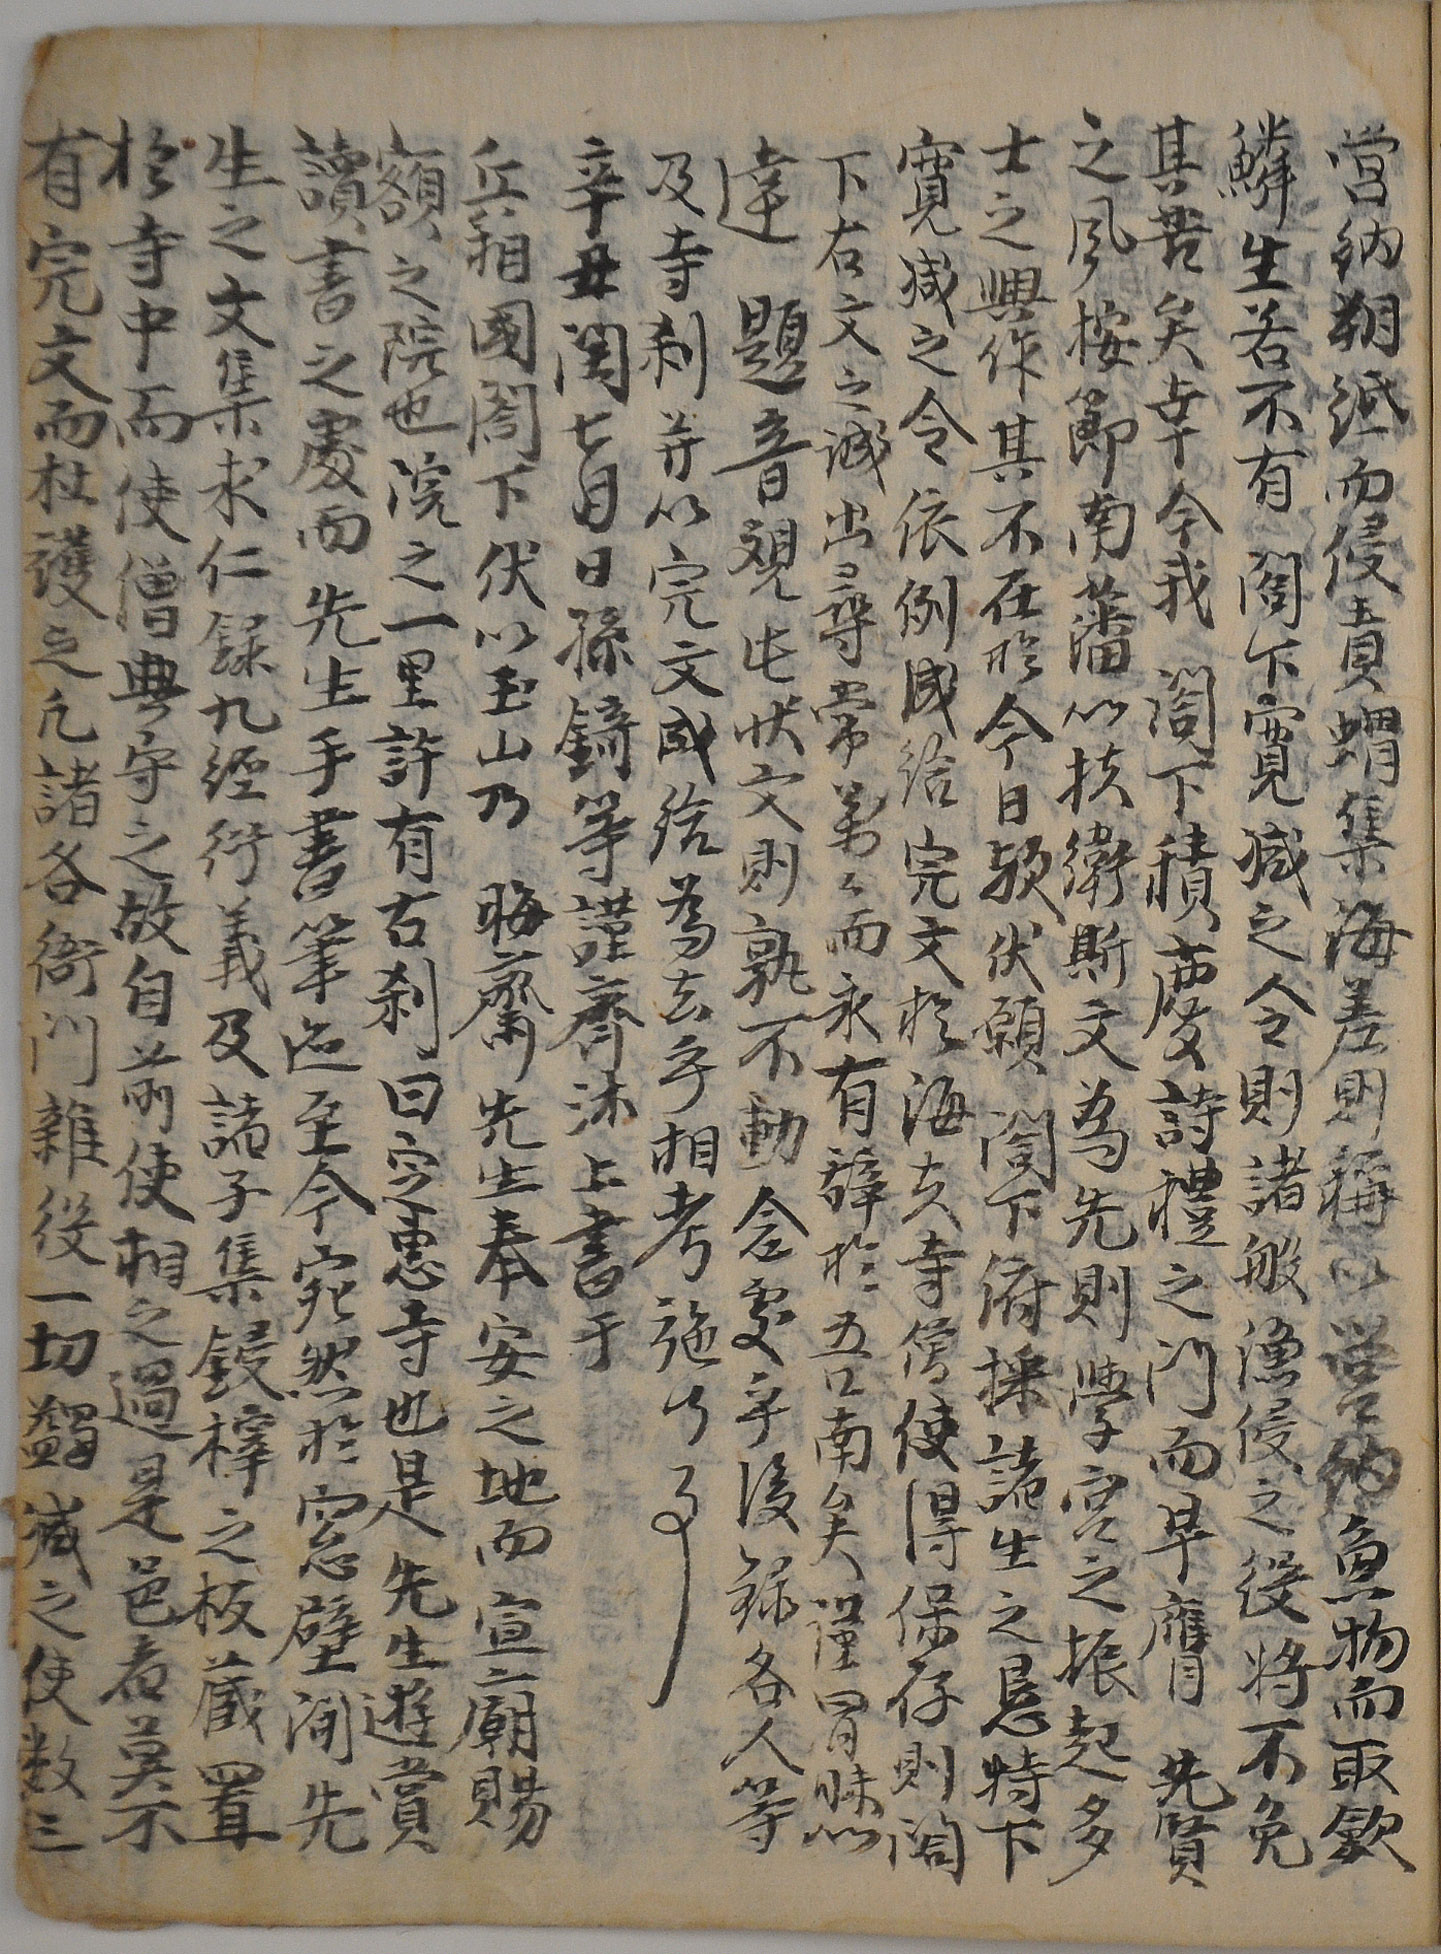 営納朔紙而侵責蝟集海差則稱以営納魚物而取斂
鱗生若不有 閤下寬减之令則諸般漁侵之役將不免
其苦矣幸今我 閤下積慶詩禮之門而早膺 先賢
之風按節南藩以扶衛斯文爲先則學宮之振起多
士之興作其不在於今日歟伏願 閤下俯採諸生之懇特下
寬减之令依例成給完文於海夫寺僧使得保存則閤
下右文之誠出尋常萬々而永有辭於吾南矣謹冒昧以
達 題音觀此狀文則孰不動念處乎後錄各人等
及寺刹并以完文成給爲去乎相考施行事
辛丑閏七月日孫鑄等謹齊沐上書于
丘箱國閤下伏以玉山乃 晦齋先生奉安之地而宣廟賜
額之院也院之一里許有古刹曰定惠寺也是先生遊賞
讀書之處而 先生手書筆迹至今宛然於窓壁間先
生之文集求仁錄九經衍義及諸子集鋟榟之板藏置
於寺中而使僧典守之故自前使相之過是邑者莫不
有完文而杜護之凡諸各衙門雜役一切蠲减之使数三